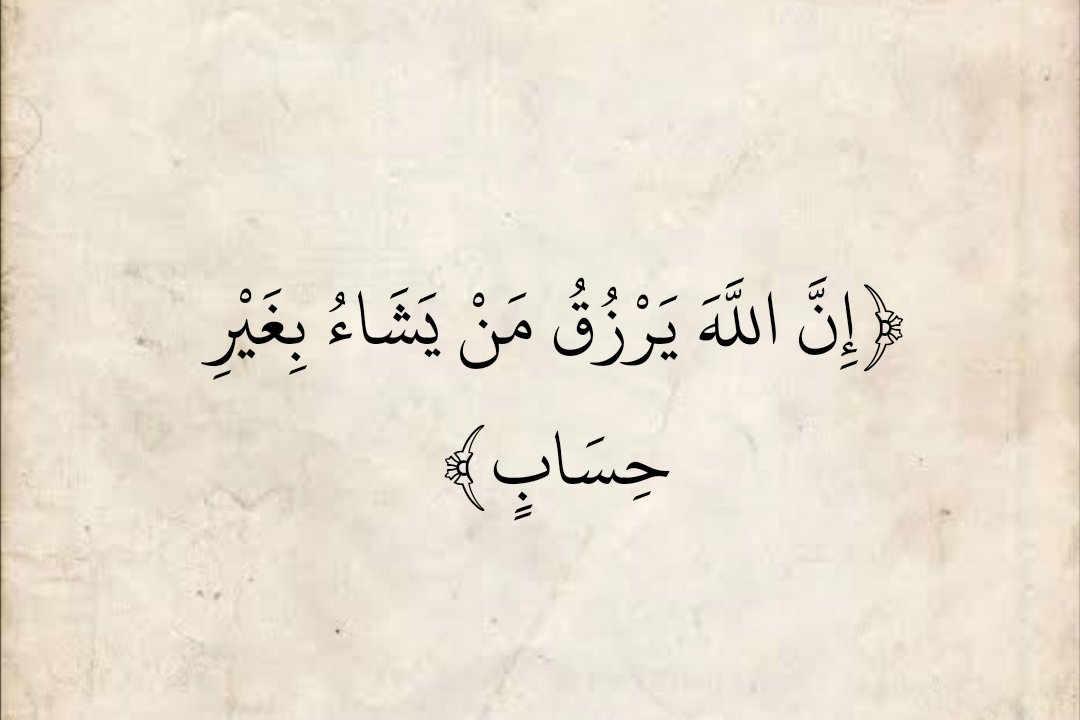 ﴿إِنَّ اللَّهَ يَرْزُقُ مَنْ يَشَاءُ بِغَيْرِ
حِسَابٍ ﴾